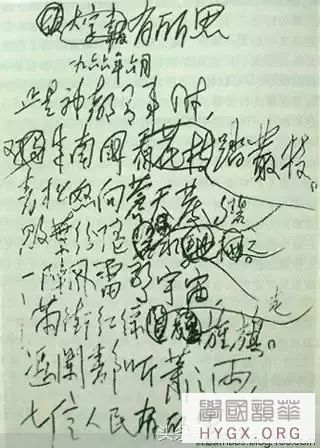 大字报有所思
九六六年六月
正是神都有事时，
又来南国看花枝踏丛枝。
青松怒向苍天发
败叶纷随碧
一阵风雷惊宇宙，
满街红绿走旌旗。
凭阑静听萧雨，
七亿人民有
學國韻華
HYGX.ORG